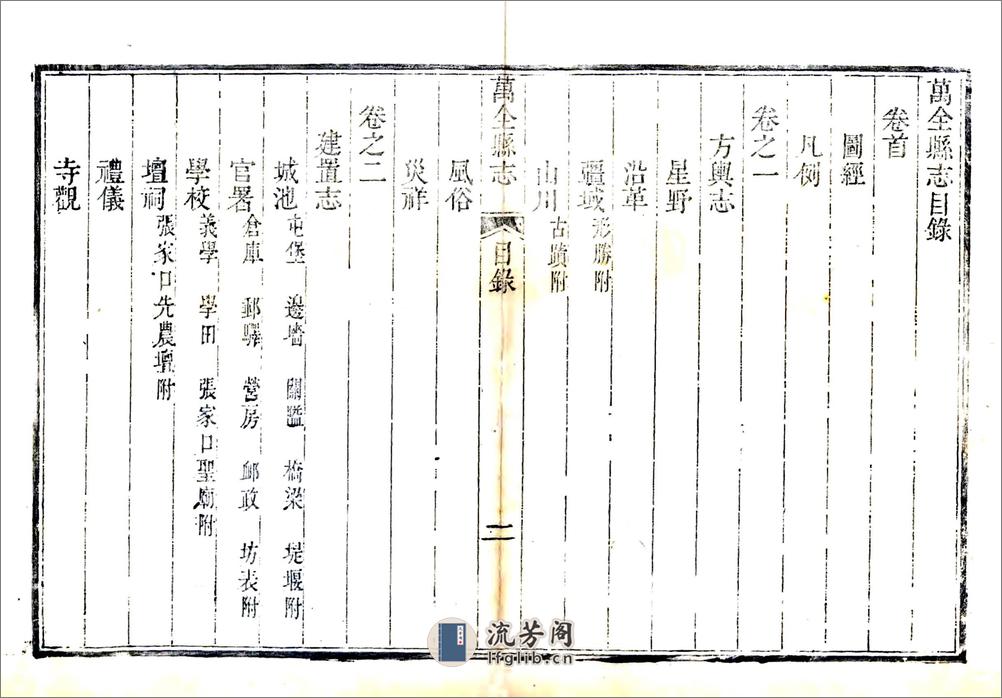 萬全縣志目錄
卷首
圖經
凡例
卷之一
方輿志
星野
沿革
疆域 形勝附
山川 古蹟附
萬全縣志 目錄 二
風俗
災祥
卷之二
建置志
城池 屯堡 邊墻 關隘 橋梁 堤堰附
官署 倉庫 郵驛 營房 卹政 坊表附
學校 義學 學田 張家口聖廟附
壇祠 張家口先農壇附
禮儀
寺觀
流芳阁
lfglib.cn